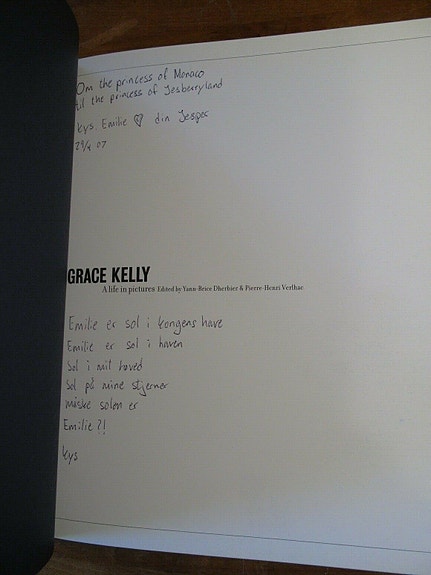 Om the princess of Monaco
til the princess of Jesberryland
kys Emilie ♡ din Jesper
29/4 07
GRACE KELLY
A life in pictures Edited by Yann-Brice Dherbier & Pierre-Henri Verlhac
Emilie er sol i kongens have
Emilie er sol i haven
Sol i mit hoved
Sol på mine stjerner
måske solen er
Emilie?!
kys